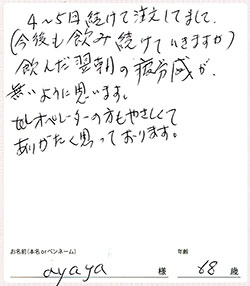 4〜5日続けて注文してまして.
(今後も飲み続けていきますが)
飲んだ翌朝の疲労感が、
無いように思います。
telオペレーターの方もやさしくて
ありがたく思っております。
お名前(本名orペンネーム) 年齢
ayaya 様 68 歳